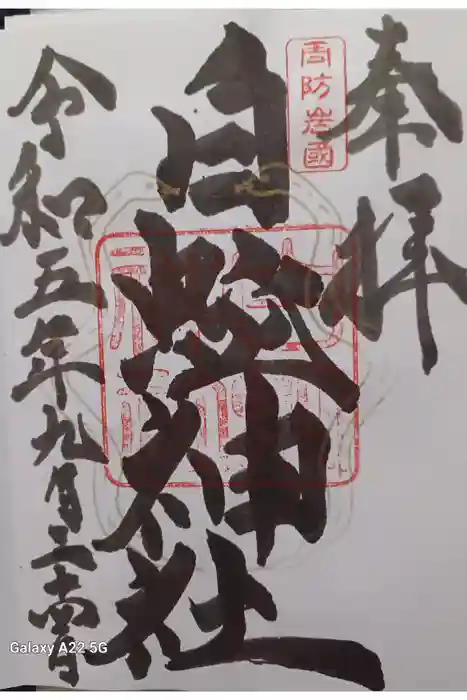 奉拝
周防岩國
白蛇神社
令和五年九月二十四日
Galaxy A22 5G